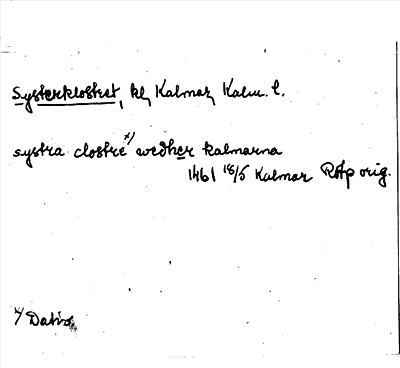 Systerklostret, kl, Kalmar, Kalm. l.
systra clostre x) wedher kalmarna
1461 18/5 Kalmar RAp orig.
x) Dativ.